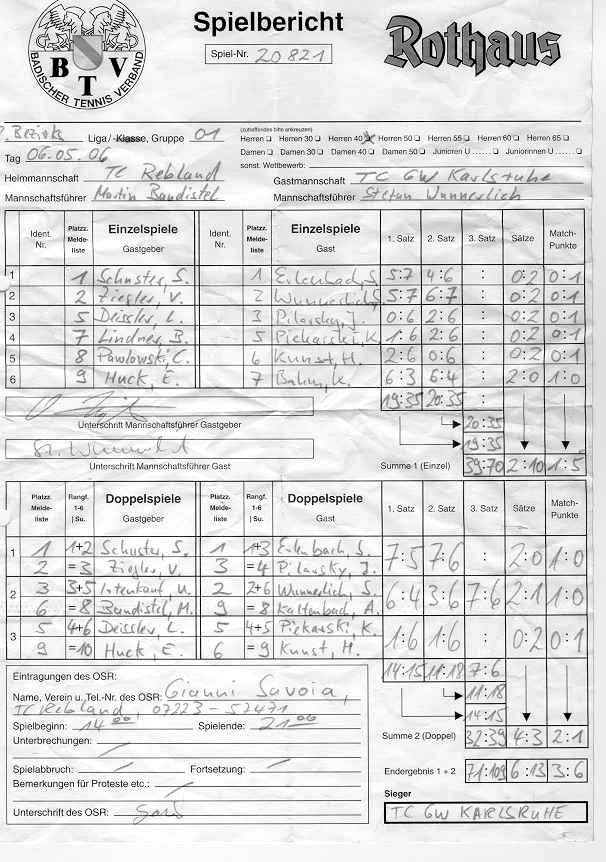 Spielbericht
Rothaus
BTV
BADISCHER TENNIS VERBAND
Spiel-Nr. 20821
Bezirks Liga/-Klasse, Gruppe 01
(zutreffendes bitte ankreuzen)
Herren ☐ Herren 30 ☐ Herren 40 ☒ Herren 50 ☐ Herren 55 ☐ Herren 60 ☐ Herren 65 ☐
Damen ☐ Damen 30 ☐ Damen 40 ☐ Damen 50 ☐ Junioren U ...... ☐ Juniorinnen U ...... ☐
Tag 06.05.06
sonst. Wettbewerb:
Heimmannschaft TC Rebland Gastmannschaft TC GW Karlsruhe
Mannschaftsführer Martin Bandistel Mannschaftsführer Stefan Wunnerlich
Ident. Nr. Platzz. Meldeliste Einzelspiele Gastgeber Ident. Nr. Platzz. Meldeliste Einzelspiele Gast 1. Satz 2. Satz 3. Satz Sätze Match-Punkte
1 1 Schuster, S. 1 Erlenbach, S. 5:7 4:6 : 0:2 0:1
2 2 Ziegler, V. 2 Wunnerlich, S. 5:7 6:7 : 0:2 0:1
3 5 Deissler, L. 3 Pilarsky, J. 0:6 2:6 : 0:2 0:1
4 7 Lindner, B. 5 Piekarski, K. 1:6 2:6 : 0:2 0:1
5 8 Pawlowski, C. 6 Kunst, H. 2:6 0:6 : 0:2 0:1
6 9 Huck, E. 7 Bahn, K. 6:3 6:4 : 2:0 1:0
19:35 20:35
Unterschrift Mannschaftsführer Gastgeber
20:35
19:35
Unterschrift Mannschaftsführer Gast
Summe 1 (Einzel) 39:70 2:10 1:5
Platzz. Meldeliste Rangf. 1-6 | Su. Doppelspiele Gastgeber Platzz. Meldeliste Rangf. 1-6 | Su. Doppelspiele Gast 1. Satz 2. Satz 3. Satz Sätze Match-Punkte
1 1 1+2 Schuster, S. 1 1+3 Erlenbach, S. 7:5 7:6 : 2:0 1:0
2 =3 Ziegler, V. 3 =4 Pilarsky, J.
2 3 3+5 2 2+6 Wunnerlich, S. 6:4 3:6 7:6 2:1 1:0
6 =8 Bandistel, M. 9 =8 Kaltenbach, A.
3 5 4+6 Deissler, L. 5 4+5 Piekarski, K. 1:6 1:6 : 0:2 0:1
9 =10 Huck, E. 6 =9 Kunst, H.
14:15 11:18 7:6
Eintragungen des OSR:
11:18
Name, Verein u. Tel.-Nr. des OSR: Gianni Savoia,
TC Rebland, 07223-52471
14:15
Spielbeginn: 14 00 Spielende: 21 00
Unterbrechungen: /
Summe 2 (Doppel) 32:39 4:3 2:1
Spielabbruch: / Fortsetzung: /
Endergebnis 1 + 2 71:109 6:13 3:6
Bemerkungen für Proteste etc.: /
Sieger
Unterschrift des OSR:
TC GW KARLSRUHE